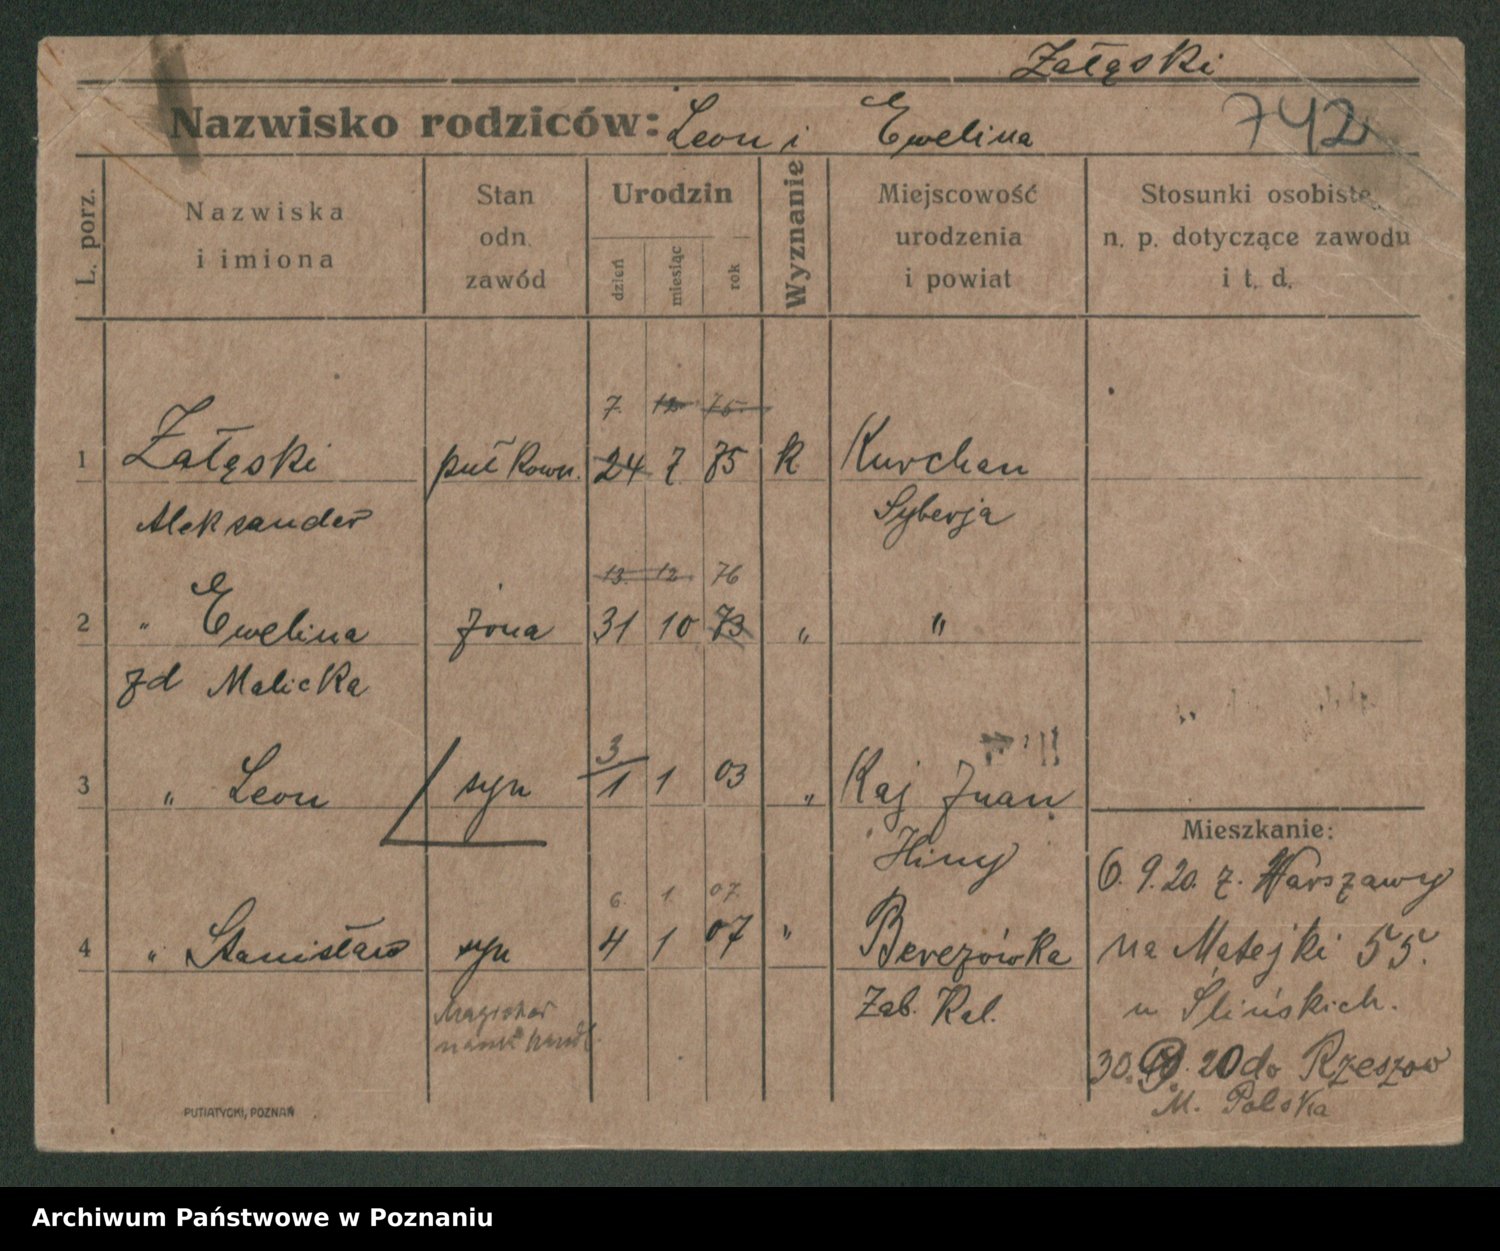 Załąski
Nazwisko rodziców: Leon i Ewelina 742
L. porz.
Nazwiska i imiona
Stan odn. zawód
Urodzin
dzień miesiąc rok
Wyznanie
Miejscowość urodzenia i powiat
Stosunki osobiste, n. p. dotyczące zawodu i t. d.
7. 12 75
1 Załąski pułkown. 24 7 75 k Kurchan
Aleksander Syberja
13. 12 76
2 " Ewelina żona 31 10 73 " "
zd Malicka
3
3 " Leon syn 1 1 03 " Kaj Juan
Hiny
Mieszkanie:
6. 9. 20. z. Warszawy
6. 1 07.
4 " Stanisław syn 4 1 07 " Berezówka
na Matejki 55.
Zab. Kal.
u Slińskich.
Magister nauk handl.
30. 20 do Rzeszow
M. Polska
PUTIATYCKI, POZNAŃ
Archiwum Państwowe w Poznaniu